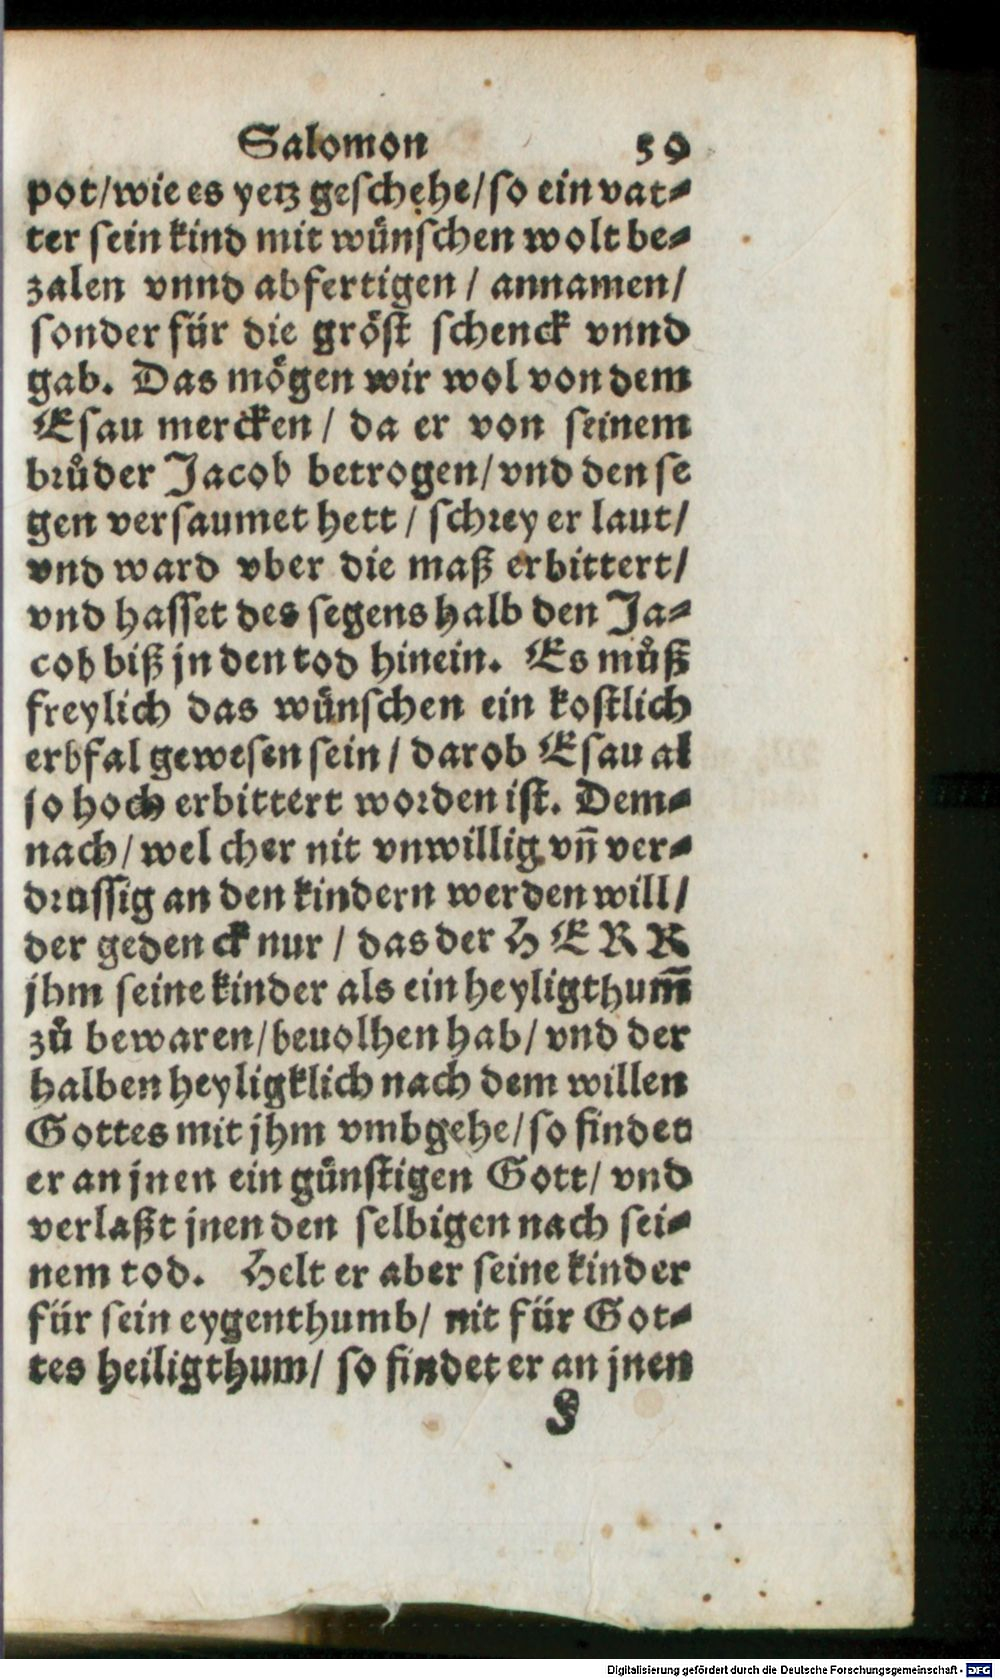 Salomon 50
pot/wie es yetz geschehe/so ein vat⸗
ter sein kind mit wünschen wolt be⸗
zalen vnnd abfertigen / annamen/
sonder für die gröst schenck vnnd
gab. Das mögen wir wol von dem
Esau mercken / da er von seinem
brůder Jacob betrogen/vnd den se
gen versaumet hett / schrey er laut/
vnd ward vber die maß erbittert/
vnd hasset des segens halb den Ja⸗
cob biß jn den tod hinein. Es můß
freylich das wünschen ein kostlich
erbfal gewesen sein / darob Esau al
so hoch erbittert worden ist. Dem⸗
nach/wel cher nit vnwillig vñ ver⸗
drussig an den kindern werden will/
der gedenck nur / das der HERR
jhm seine kinder als ein heyligthum̄
zů bewaren/beuolhen hab/vnd der
halben heyligklich nach dem willen
Gottes mit jhm vmbgehe/so findet
er an jnen ein günstigen Gott/ vnd
verlaßt jnen den selbigen nach sei⸗
nem tod. Helt er aber seine kinder
für sein eygenthumb/ nit für Got⸗
tes heiligthum/ so findet er an jnen
Digitalisierung gefördert durch die Deutsche Forschungsgemeinschaft - DFG